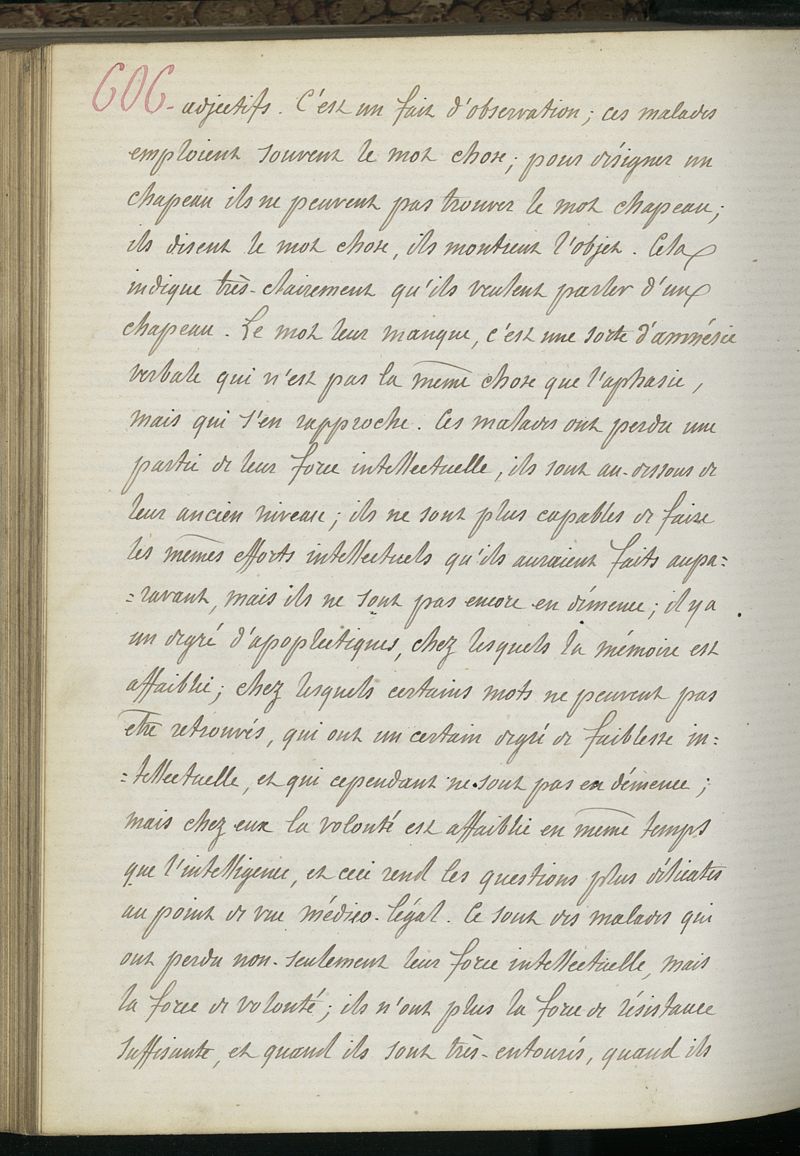 606 - adjectifs. C'est un fait d'observation; ces malades
emploient souvent le mot chose; pour désigner un
chapeau ils ne peuvent pas trouver le mot chapeau;
ils disent le mot chose, ils montrent l'objet. Cela
indique très-clairement qu'ils veulent parler d'un
chapeau. Le mot leur manque, c'est une sorte d'amnésie
verbale qui n'est pas la même chose que l'aphasie,
mais qui s'en rapproche. Ces malades ont perdu une
partie de leur force intellectuelle, ils sont au-dessous de
leur ancien niveau; ils ne sont plus capables de faire
les mêmes efforts intellectuels qu'ils auraient faits aupa=
=ravant, mais ils ne sont pas encore en démence; il y a
un degré d'apoplectiques, chez lesquels la mémoire est
affaiblie; chez lesquels certains mots ne peuvent pas
être retrouvés, qui ont un certain degré de faiblesse in=
=tellectuelle, et qui cependant ne sont pas en démence;
mais chez eux la volonté est affaiblie en même temps
que l'intelligence, et ceci rend les questions plus délicates
au point de vue médico-légal. Ce sont des malades qui
ont perdu non-seulement leur force intellectuelle, mais
la force de volonté; ils n'ont plus la force de résistance
suffisante, et quand ils sont très-entourés, quand ils